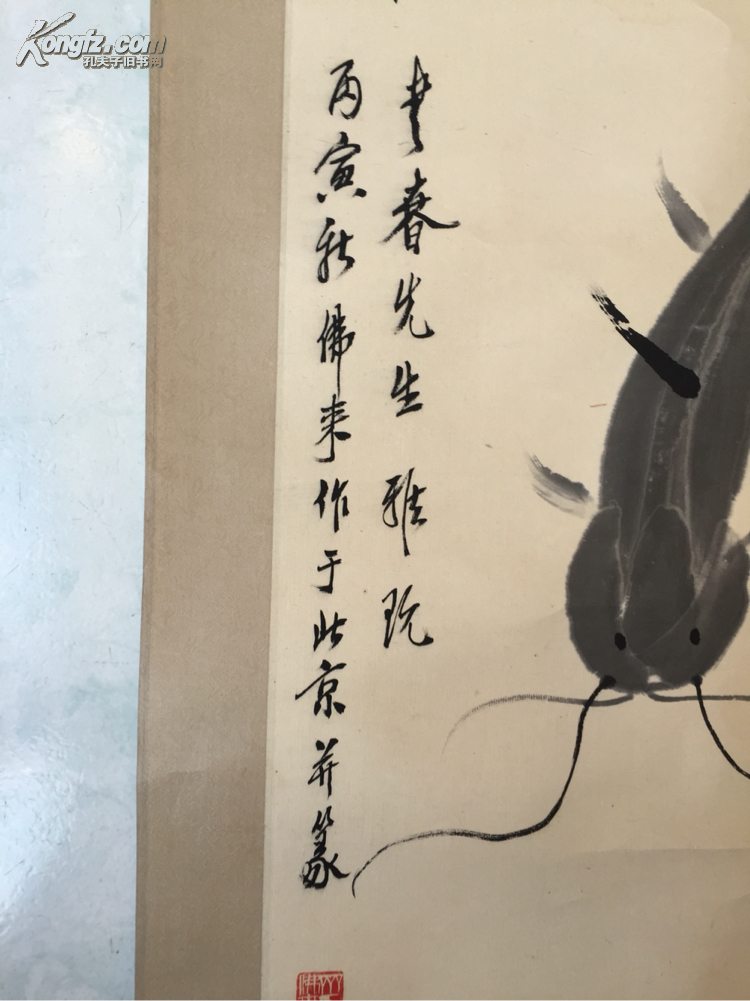 Kongfz.com
孔夫子旧书网
春先生雅玩
丙寅秋佛来作于北京并篆